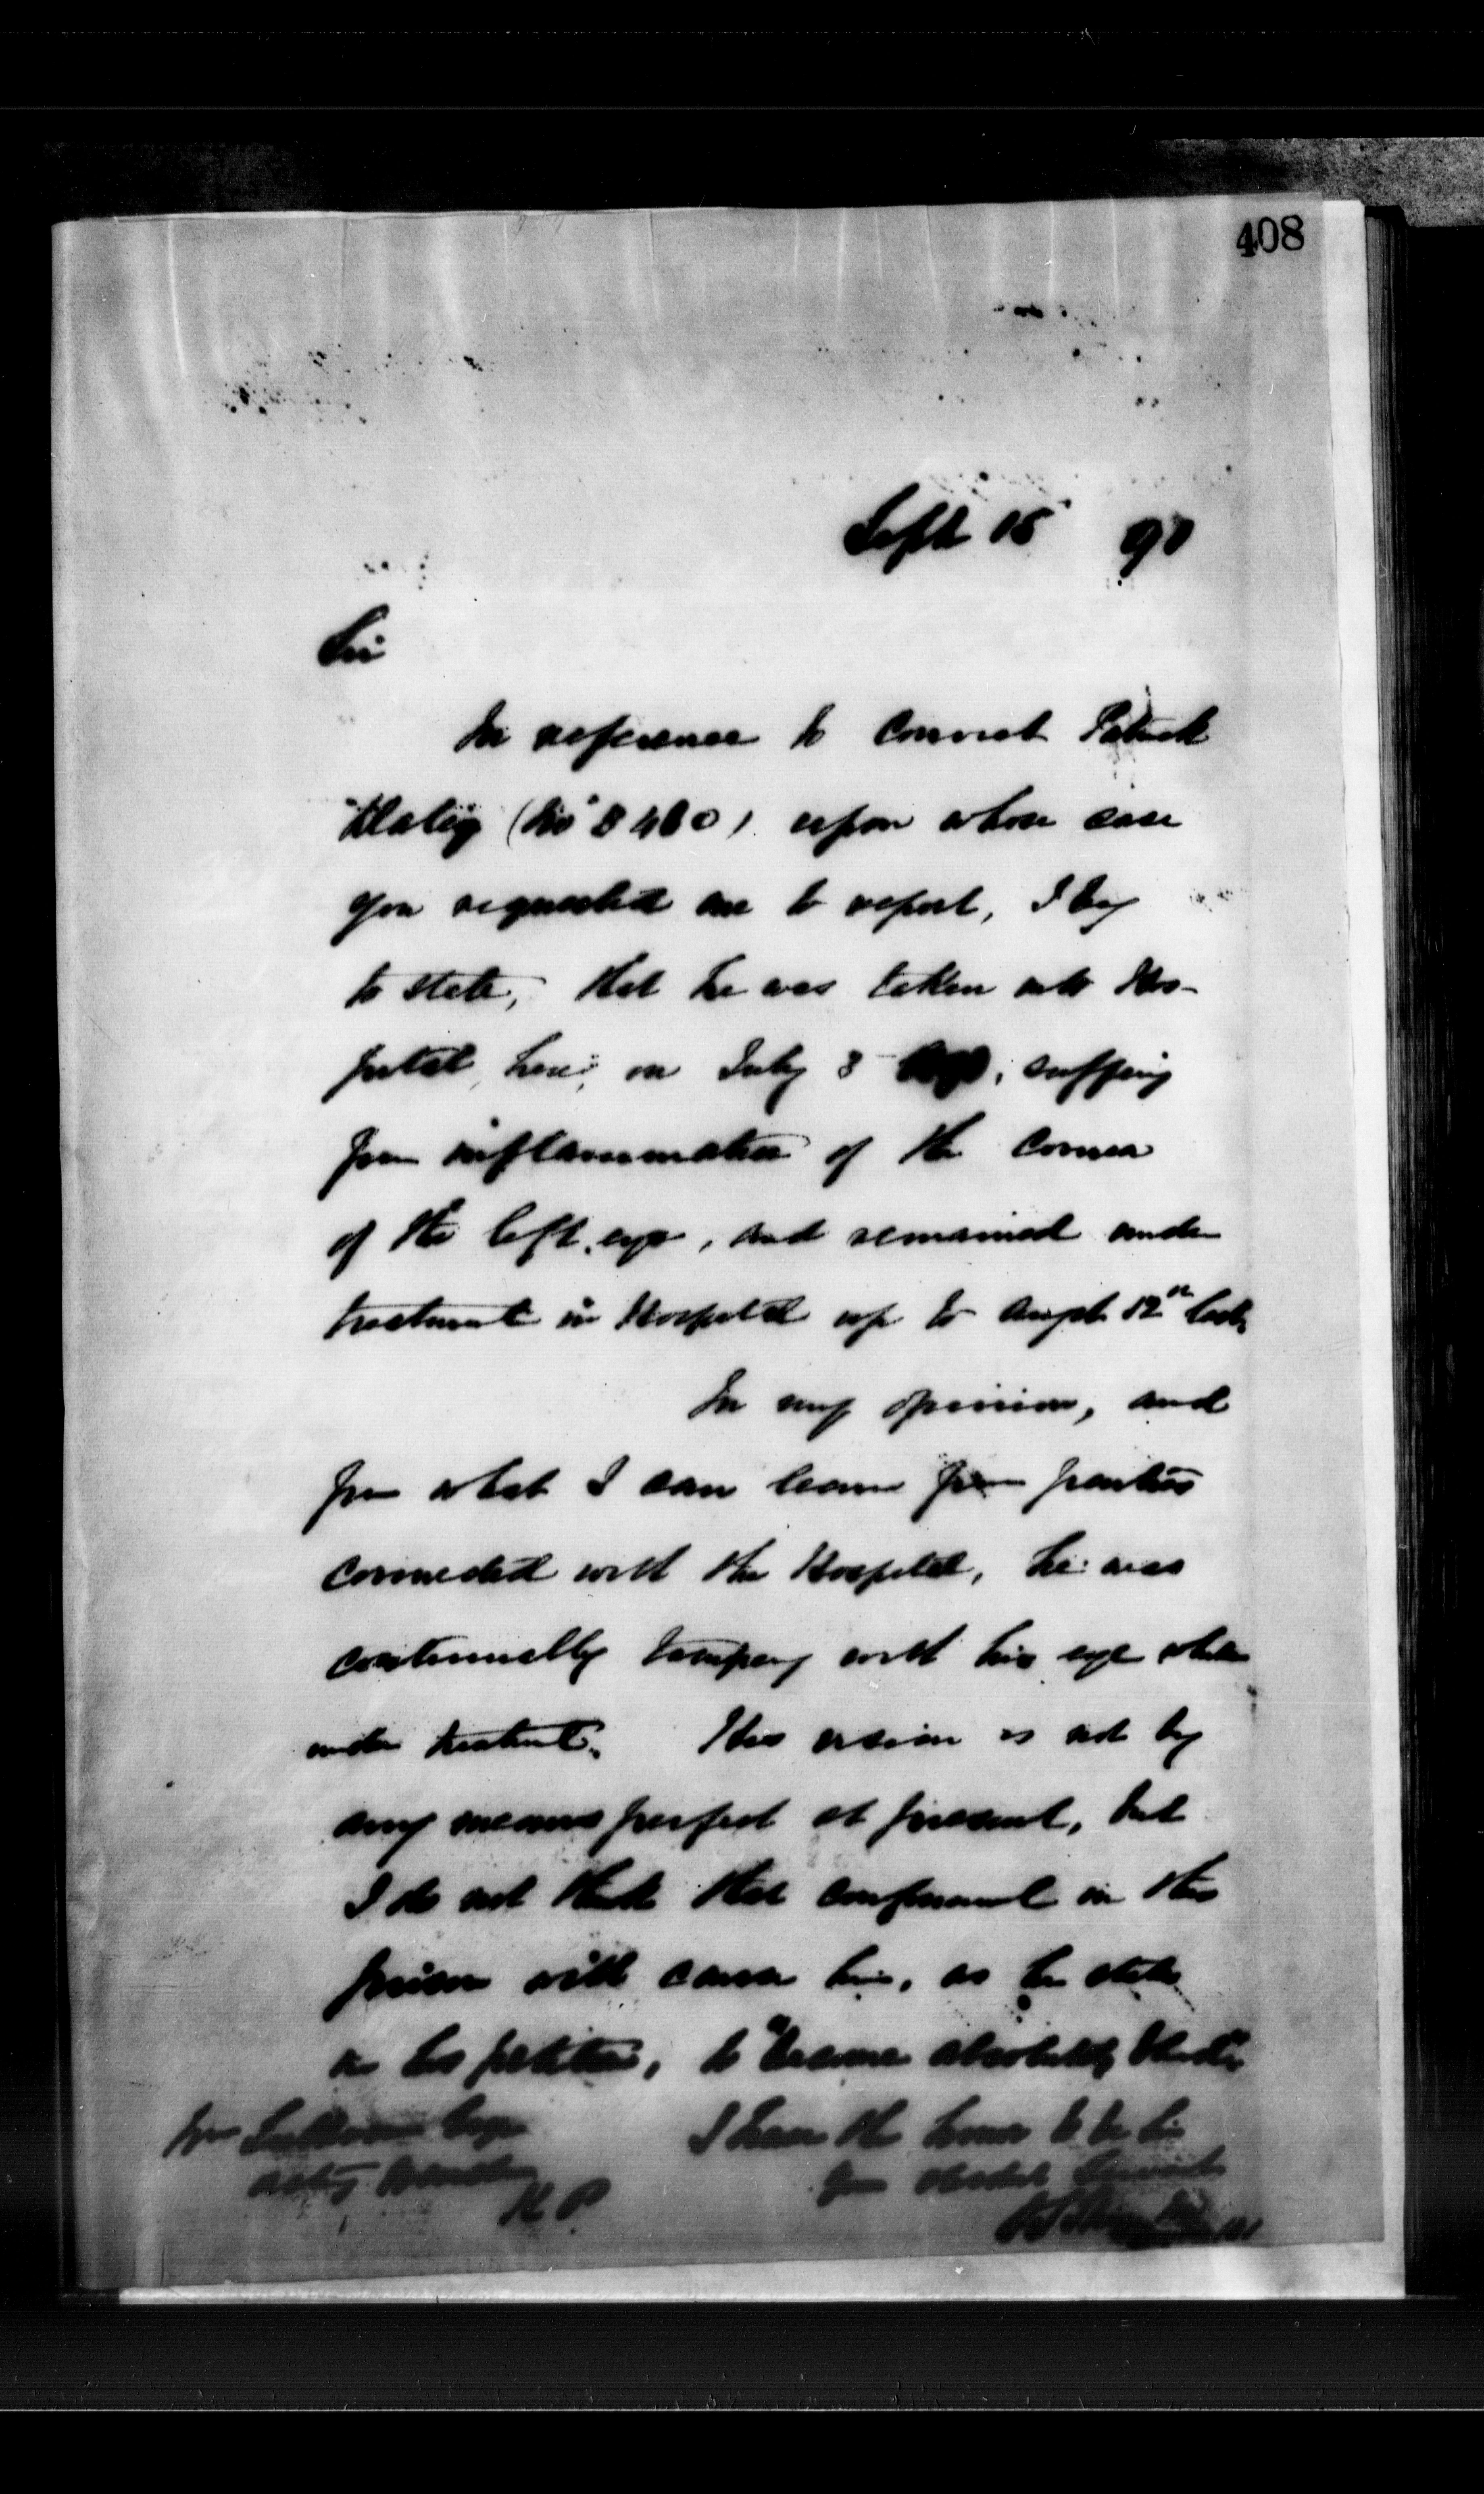 408
Sept 15 90
Sir
In reference to Convict Patrick
(No
upon whose case
you requested me to report, I beg
to state, that he was taken into Hos-
pital here, on July 8 suffering
from inflammation of the Cornea
of the left eye, and remained under
treatment in Hospital up to Augst 12th last.
In my opinion, and
from what I can learn from parties
connected with the Hospital, he was
continually tampering with his eye while
under treatment. His vision is not by
any means perfect at present, but
I do not think that confinement in this
prison will cause him, as he states
in his petition, to "become absolutely blind".
I have the honor to be Sir
Your Obedient Servant
Acting Warden
K P